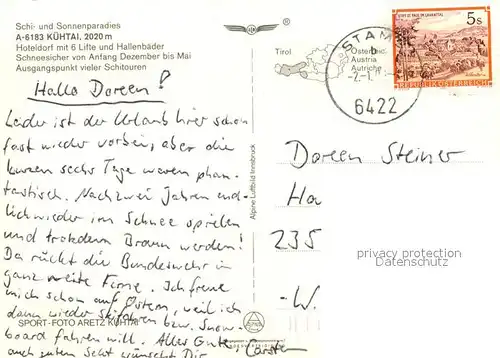 Schi- und Sonnenparadies
A-6183 KÜHTAI, 2020 m
Hoteldorf mit 6 Lifte und Hallenbäder
Schneesicher von Anfang Dezember bis Mai
Ausgangspunkt vieler Schitouren
Hallo Doreen!
Leider ist der Urlaub hier schon
fast wieder vorbei, aber die
kurzen sechs Tage waren phan-
tastisch. Nach zwei Jahren end-
lich wieder im Schnee spielen
und trotzdem Braun werden!
Da rückt die Bundeswehr in
ganz weite Ferne. Ich freue
mich schon auf Ostern, weil ich
dann wieder skifahren bzw. Snow-
board fahren will. Alles Gute
auch guten Sekt wünscht Dir
Carsten
SPORT-FOTO ARETZ KÜHTAI
Alpine Luftbild Innsbruck
Tirol
Österreich
Austria
Autriche
STAM
b
6422
5s
STIFT ST. PAUL IM LAVANTTAL
REPUBLIK ÖSTERREICH
Doreen Steiner
Ha
235
-W.
privacy protection
Datenschutz